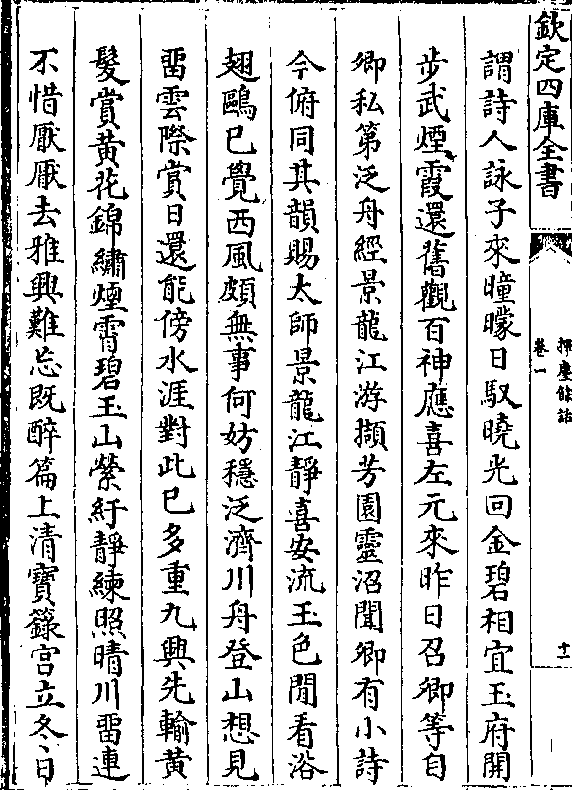 欽定四庫全書
揮麈餘話
卷一
十一
謂詩人詠子來曈曚日馭曉光回金碧相宜玉府開
步武煙霞還舊觀百神應喜左元來昨日召卿等自
卿私第泛舟經景龍江游擷芳園靈沼聞卿有小詩
今俯同其韻賜太師景龍江靜喜安流玉色閒看浴
翅鷗已覺西風頗無事何妨穩泛濟川舟登山想見
畱雲際賞日還能傍水涯對此已多重九興先輸黄
髮賞黄花錦繡煙霄碧玉山縈紆靜練照晴川畱連
不惜厭厭去雅興難忘既醉篇上清寶籙宫立冬日